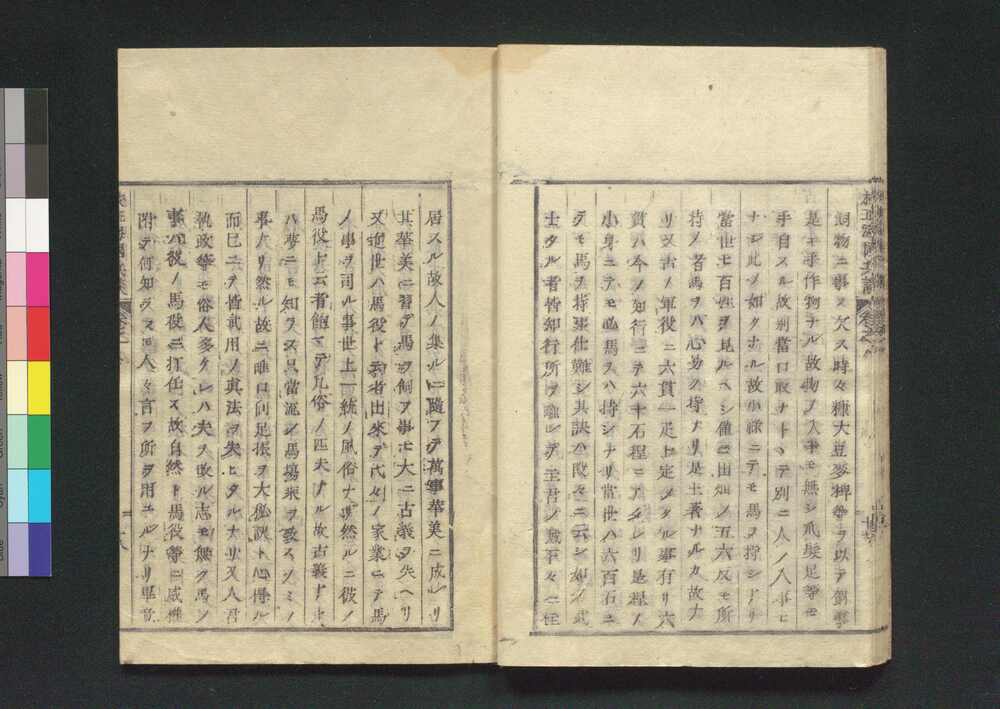 飼物ニ事ヲ欠ス時々糠大豆麥稗等ヲ以テ飼事
是モ手作物ナル故拘ノ入事モ無シ爪髮足等モ
手自スル故別當口取ナトトテ別ニ人ノ入事ニ
ナシ此ノ如クナル故小祿ニテモ馬ヲ持シナリ
當世モ百姓ヲ見ルヘシ僅ニ田畑ノ五六反モ所
持ノ者馬ヲハ心易ク持ナリ是土著ナルカ故ナ
リ又古ノ軍役ニ六貫一疋ト定メタル事有リ六
貫ハ今ノ知行ニテ六十石程ニアタレリ是程ノ
小身ニテモ必馬ヲハ持シナリ當世ハ六百石ニ
テモ馬ヲ持事仕難シ其訣ハ段々ニ云シ如ク武
士タル者皆知行所ヲ離レテ主君ノ城下々ニ住
居スル故人ノ集ルニ隨フテ萬事華美ニ成レリ
其華美ニ習テ馬ヲ飼フ事モ大ニ古義ヲ失ヘリ
又近世ハ馬役ト云者出來テ代々ノ家業ニテ馬
ノ事ヲ司ル事世上一統ノ風俗ナリ然ルニ彼ノ
馬役ト云者飽マテ凡俗ノ匹夫ナル故古義トハ
ハ夢ニモ知ラス只當流シ馬場乘ヲ教ユルノミノ
事ナリ然ル故ニ唯口向足振ヲ大秘訣ト心得ル
而已ニテ皆武用ノ真法ヲ失ヒタルナリ又人君
執政等モ俗人多ケレハ夫ヲ改ル志モ無ク馬ノ
事ハ彼ノ馬役ニ打任ス故自然ト馬役等ニ威權
附テ何知ラヌ人々言フ所ヲ用ユルナリ畢竟